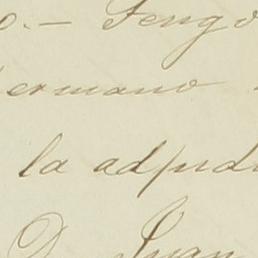 o.— Tengo
hermano
la adjudi
D. Juan